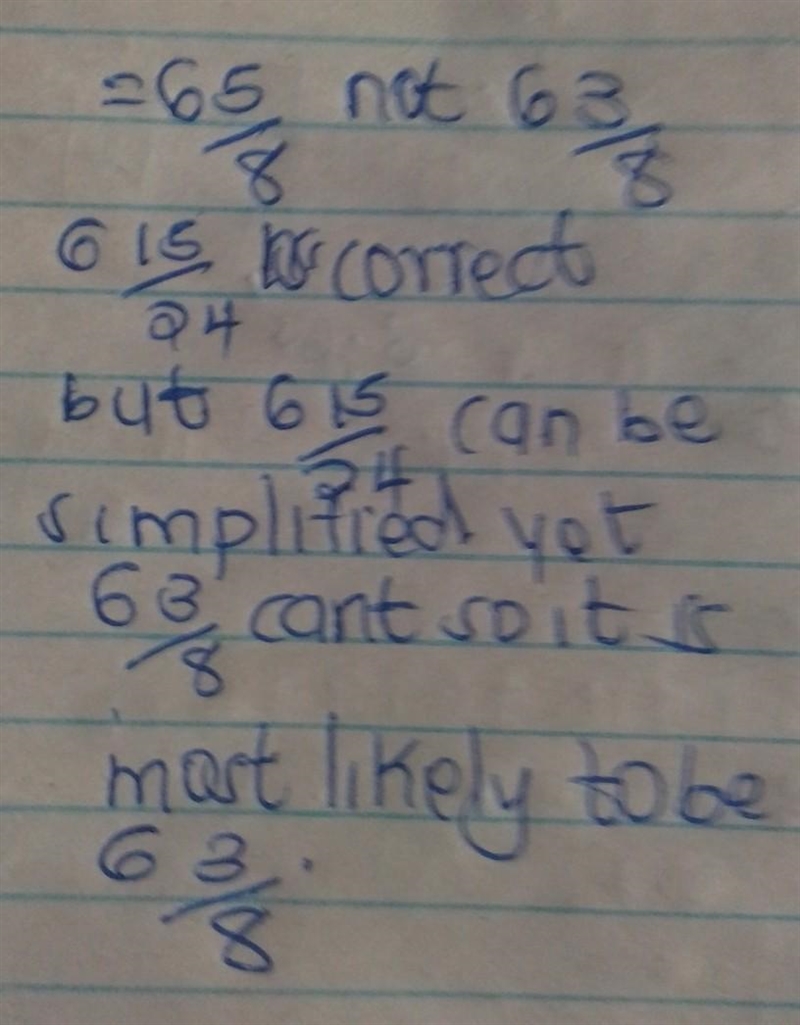 = 6 5/8 not 6 3/8
6 15/24 correct
but 6 15/24 can be
simplified yet
6 3/8 cant so it is
most likely to be
6 3/8.